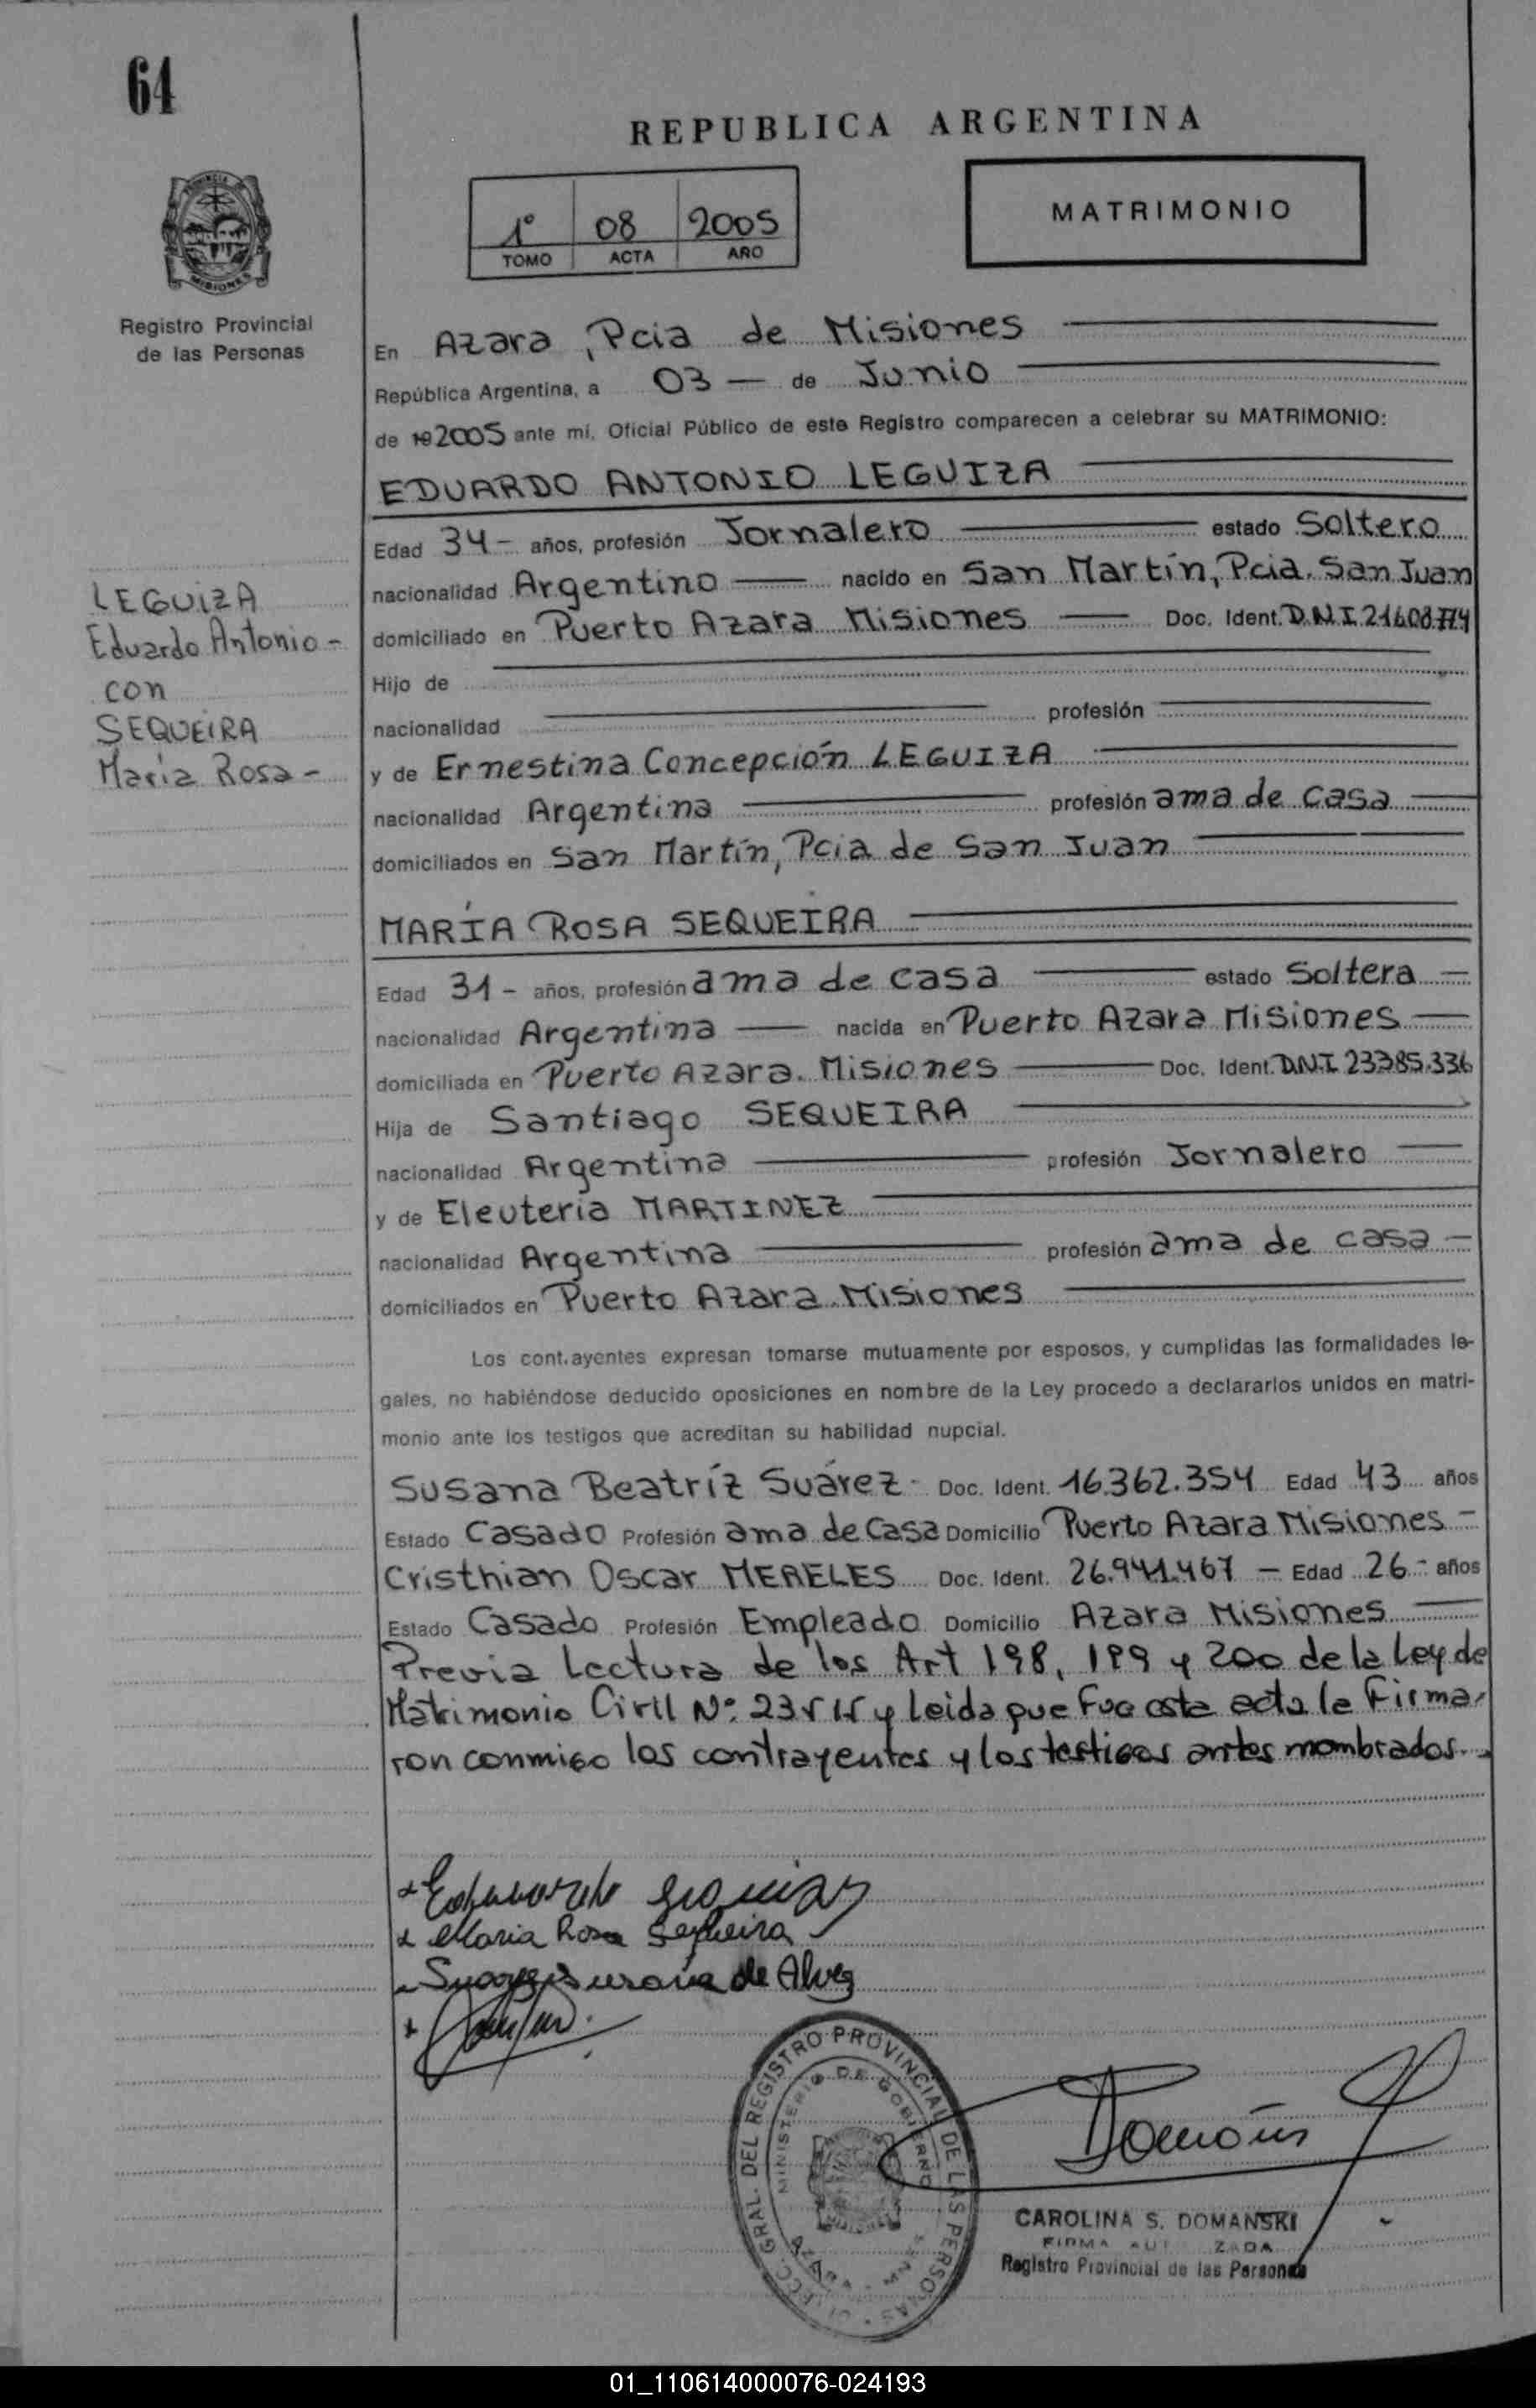 64
REPUBLICA ARGENTINA
1º 08 2005
TOMO ACTA AÑO
MATRIMONIO
MISIONES
Registro Provincial
de las Personas
En Azara, Pcia de Misiones
República Argentina, a 03 — de Junio
de 192005 ante mí, Oficial Público de este Registro comparecen a celebrar su MATRIMONIO:
EDUARDO ANTONIO LEGUIZA
Edad 34 - años, profesión Jornalero estado Soltero
nacionalidad Argentino nacido en San Martín, Pcia. San Juan
domiciliado en Puerto Azara Misiones Doc. Ident. D.N.I. 21.608.774
Hijo de
nacionalidad profesión
y de Ernestina Concepción LEGUIZA
nacionalidad Argentina profesión ama de casa
domiciliados en San Martín, Pcia de San Juan
LEGUIZA
Eduardo Antonio -
con
SEQUEIRA
María Rosa -
MARÍA ROSA SEQUEIRA
Edad 31 - años, profesión ama de casa estado Soltera
nacionalidad Argentina nacida en Puerto Azara Misiones
domiciliada en Puerto Azara. Misiones Doc. Ident. D.N.I. 23.385.336
Hija de Santiago SEQUEIRA
nacionalidad Argentina profesión Jornalero
y de Eleuteria MARTINEZ
nacionalidad Argentina profesión ama de casa
domiciliados en Puerto Azara Misiones
Los contrayentes expresan tomarse mutuamente por esposos, y cumplidas las formalidades le-
gales, no habiéndose deducido oposiciones en nombre de la Ley procedo a declararlos unidos en matri-
monio ante los testigos que acreditan su habilidad nupcial.
Susana Beatríz Suárez - Doc. Ident. 16.362.354 Edad 43 años
Estado Casado Profesión ama de casa Domicilio Puerto Azara Misiones -
Cristhian Oscar MERELES Doc. Ident. 26.941.467 - Edad 26 - años
Estado Casado Profesión Empleado Domicilio Azara Misiones
Previa Lectura de los Art 198, 199 y 200 de la Ley de
Matrimonio Civil Nº 23515 y leida que fue esta acta la firma-
ron conmigo los contrayentes y los testigos antes nombrados.
Maria Rosa Sequeira
de Alvez
DIRECC. GRAL. DEL REGISTRO PROVINCIAL DE LAS PERSONAS
MINISTERIO DE GOBIERNO
AZARA
CAROLINA S. DOMANSKI
FIRMA AUTORIZADA
Registro Provincial de las Personas
01_110614000076-024193